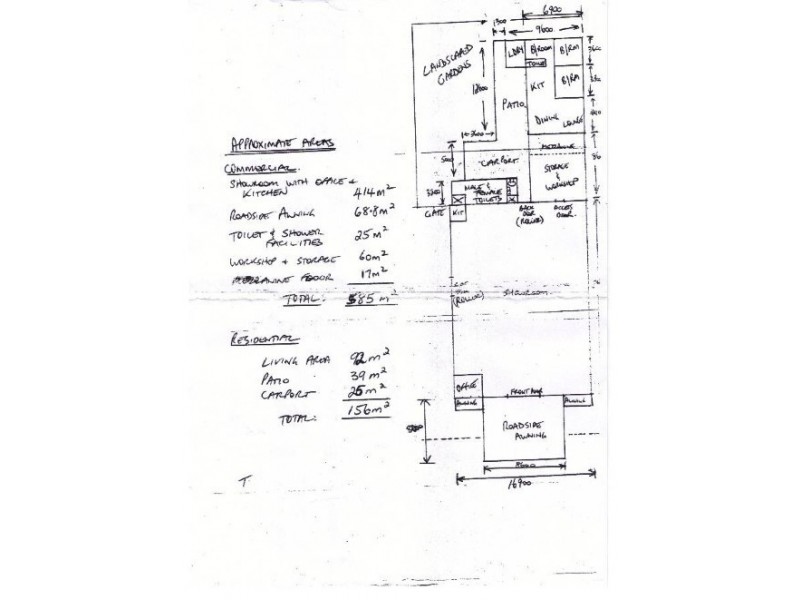 APPROXIMATE AREAS
COMMERCIAL
SHOWROOM WITH OFFICE +
KITCHEN 414m²
ROADSIDE AWNING 68.8m²
TOILET & SHOWER
FACILITIES 25m²
WORKSHOP + STORAGE 60m²
MEZZANINE FLOOR 17m²
TOTAL: 585m²
RESIDENTIAL
LIVING AREA 92m²
PATIO 39m²
CARPORT 25m²
TOTAL: 156m²
T
6900
1300
9600
LANDSCAPED
GARDENS
LDRY
B/ROOM
B/RM
TOILET
KIT
B/RM
12600
PATIO
DINING LOUNGE
2600
CARPORT
STORAGE
&
WORKSHOP
MALE &
FEMALE
TOILETS
GATE
KIT
BACK
DOOR
(ROLLER)
ACCESS
DOOR
(ROLLER)
SHOWROOM
OFFICE
FRONT DOOR
AWNING
AWNING
ROADSIDE
AWNING
8600
16900